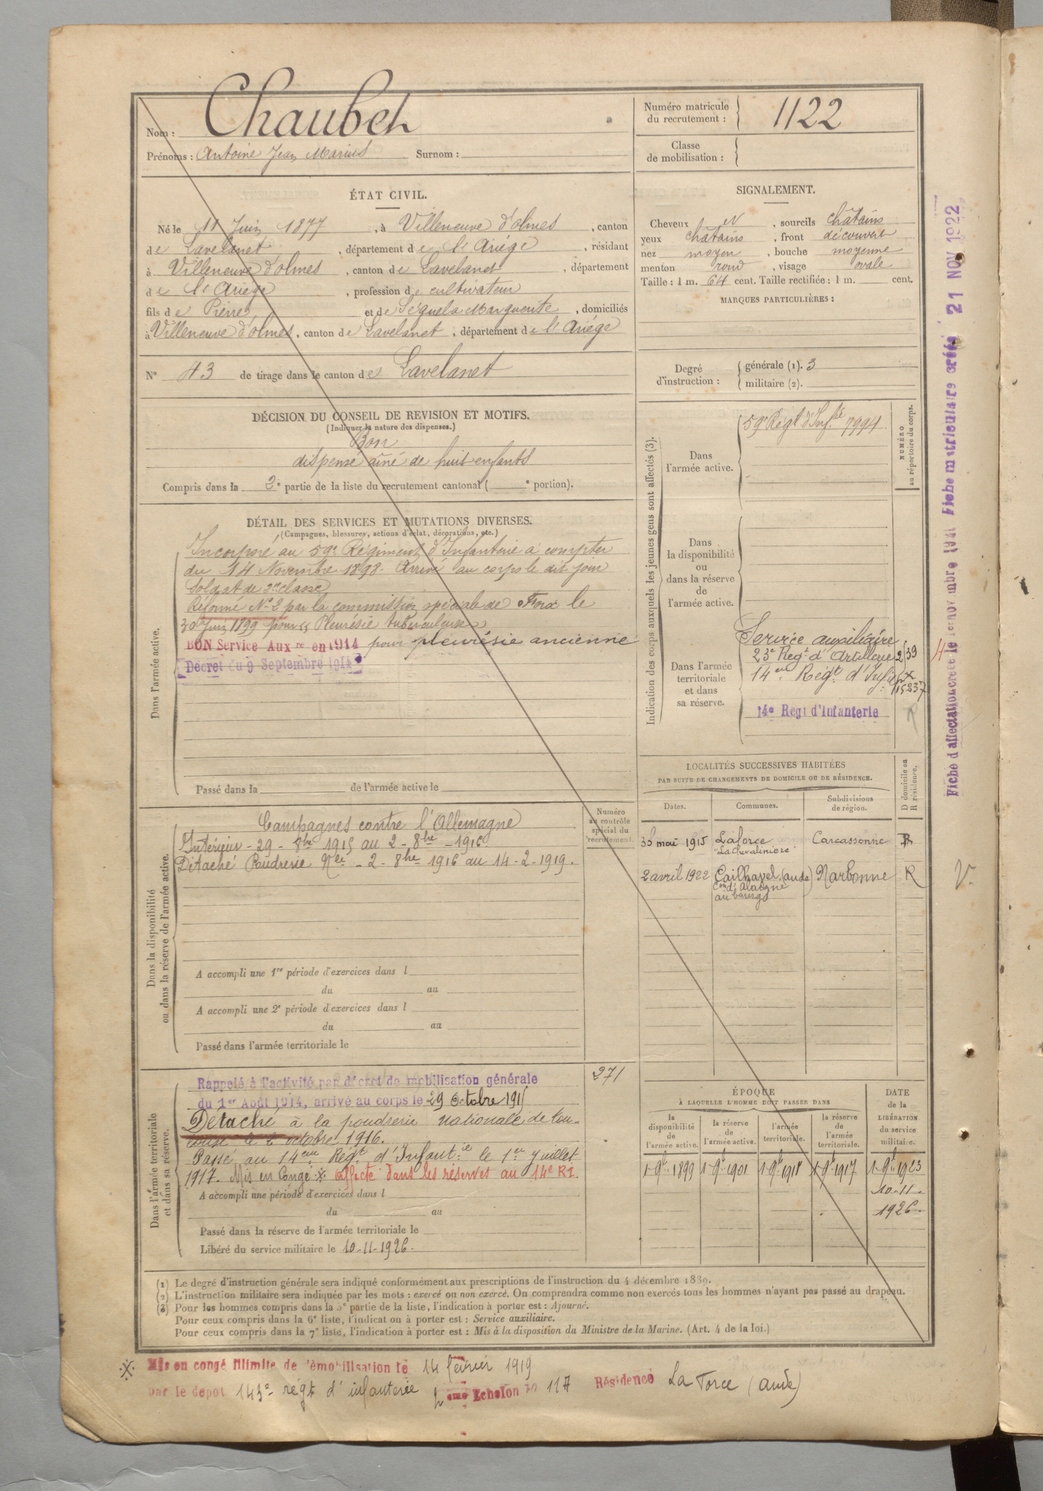 Nom : Chaubet
Prénoms : Antoine Jean Marius Surnom :
Numéro matricule du recrutement : 1122
Classe de mobilisation :
ÉTAT CIVIL.
Né le 11 Juin 1877, à Villeneuve d'olmes, canton
de Lavelanet, département de l'Ariège, résidant
à Villeneuve d'olmes, canton de Lavelanet, département
de l'Ariège, profession de cultivateur
fils de Pierre et de Séguela Marguerite, domiciliés
à Villeneuve d'olmes, canton de Lavelanet, département de l'Ariège
N° 43 de tirage dans le canton de Lavelanet
SIGNALEMENT.
Cheveux N, sourcils châtains
yeux châtains, front découvert
nez moyen, bouche moyenne
menton rond, visage ovale
Taille : 1 m. 64 cent. Taille rectifiée : 1 m. cent.
MARQUES PARTICULIÈRES :
Degré d'instruction : générale (1). 3
militaire (2).
DÉCISION DU CONSEIL DE REVISION ET MOTIFS.
(Indiquer la nature des dispenses.)
Bon
dispensé aîné de huit enfants
Compris dans la 2e partie de la liste du recrutement cantonal ( e portion).
DÉTAIL DES SERVICES ET MUTATIONS DIVERSES.
(Campagnes, blessures, actions d'éclat, décorations, etc.)
Dans l'armée active.
Incorporé au 59e Régiment d'Infanterie à compter
du 14 Novembre 1898. Arrivé au corps le dit jour
Soldat de 2e classe
Réformé N° 2 par la commission spéciale de Foix le
30 Juin 1899 pour Pleurésie tuberculeuse
BON Service Auxre en 1914 pour pleurésie ancienne
Décret du 9 Septembre 1914
Passé dans la de l'armée active le
Indication des corps auxquels les jeunes gens sont affectés (3).
NUMÉRO au répertoire du corps.
Dans l'armée active.
59e Regt d'Infie 7994
Dans la disponibilité ou dans la réserve de l'armée active.
Dans l'armée territoriale et dans sa réserve.
Service auxiliaire
23e Regt d'Artillerie 2/39
14eme Regt d'Infie
14e Régt d'Infanterie
Fiche d'affectation créée le 1er novembre Fiche matriculaire créée 21 NOV 1922
LOCALITÉS SUCCESSIVES HABITÉES
PAR SUITE DE CHANGEMENTS DE DOMICILE OU DE RÉSIDENCE.
Dates. Communes. Subdivisions de région. D domicile ou R résidence.
mai 1915 Laforce Carcassonne R
2 avril 1922 Cailhavel (aude) Narbonne R
au bourg
Dans la disponibilité ou dans la réserve de l'armée active.
Campagnes contre l'Allemagne
Intérieur - 29 - 8bre 1915 au 2 - 8bre - 1916
Détaché Poudrerie Nle - 2 - 8bre 1916 au 14-2-1919.
Numéro au contrôle spécial du recrutement.
A accompli une 1re période d'exercices dans l
du au
A accompli une 2e période d'exercices dans l
du au
Passé dans l'armée territoriale le
Dans l'armée territoriale et dans sa réserve.
Rappelé à l'activité par décret de mobilisation générale 271
du 1er Août 1914, arrivé au corps le 29 octobre 1915
Détaché à la poudrerie nationale de Tou-
louse le 2 octobre 1916.
Passé au 14eme Regt d'Infantie le 1er Juillet
1917. Mis en Congé ※ affecté dans les réserves au 14e R.I.
A accompli une période d'exercices dans l
du au
Passé dans la réserve de l'armée territoriale le
Libéré du service militaire le 10-11-1926.
ÉPOQUE
À LAQUELLE L'HOMME DOIT PASSER DANS
la disponibilité de l'armée active. la réserve de l'armée active. l'armée territoriale. la réserve de l'armée territoriale. DATE de la LIBÉRATION du service militaire.
1-9bre 1899 1-9bre 1901 1-9bre 1911 1-9bre 1917 1-9bre 1923
10-11-
1926.
(1) Le degré d'instruction générale sera indiqué conformément aux prescriptions de l'instruction du 4 décembre 1889.
(2) L'instruction militaire sera indiquée par les mots : exercé ou non exercé. On comprendra comme non exercés tous les hommes n'ayant pas passé au drapeau.
(3) Pour les hommes compris dans la 5e partie de la liste, l'indication à porter est : Ajourné.
Pour ceux compris dans la 6e liste, l'indication à porter est : Service auxiliaire.
Pour ceux compris dans la 7e liste, l'indication à porter est : Mis à la disposition du Ministre de la Marine. (Art. 4 de la loi.)
※ Mis en congé illimité de démobilisation le 14 février 1919
par le dépôt 143e régt d'infanterie eme Echelon no 117 Résidence La Force (aude)